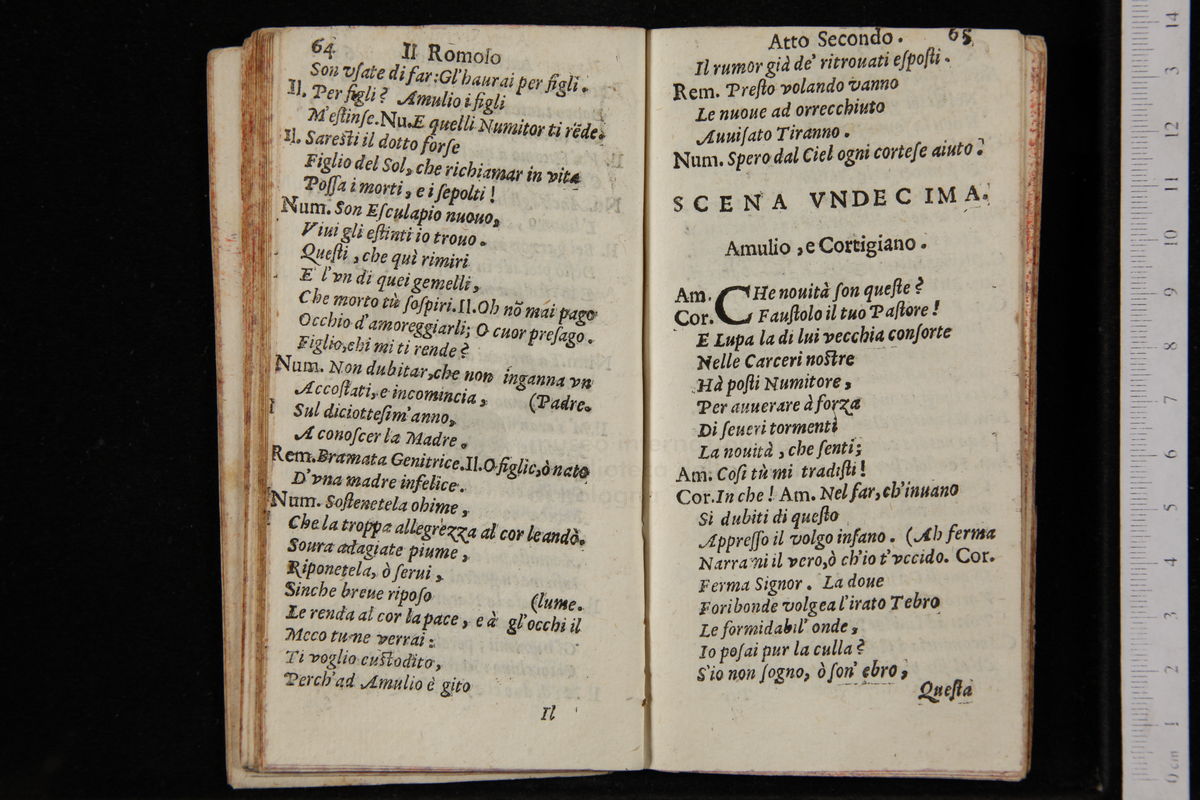 64 Il Romolo
Son vſate di far: Gl'haurai per figli.
Il. Per figli? Amulio i figli
M'eſtinſe. Nu. E quelli Numitor ti rẽde.
Il. Sareſti il dotto forſe
Figlio del Sol, che richiamar in vita
Poſſa i morti, e i ſepolti!
Num. Son Eſculapio nuouo,
Viui gli eſtinti io trouo.
Queſti, che quì rimiri
E l'vn di quei gemelli,
Che morto tù ſoſpiri. Il. Oh nõ mái pago
Occhio d'amoreggiarli; O cuor preſago.
Figlio, chi mi ti rende?
Num. Non dubitar, che non inganna vn
Accoſtati, e incomincia, (Padre.
Sul diciotteſim'anno,
A conoſcer la Madre.
Rem. Bramata Genitrice. Il. O figlio, ò nato
D'vna madre infelice.
Num. Soſtenetela ohime,
Che la troppa allegrezza al cor le andò.
Soura adagiate piume,
Riponetela, ò ſerui,
Sinche breue ripoſo (lume.
Le renda al cor la pace, e à gl'occhi il
Meco tu ne verrai:
Ti voglio cuſtodito,
Perch'ad Amulio è gito
Il
Atto Secondo. 65
Il rumor già de' ritrouati eſpoſti.
Rem. Preſto volando vanno
Le nuoue ad orrecchiuto
Auuiſato Tiranno.
Num. Spero dal Ciel ogni corteſe aiuto?
SCENA VNDECIMA.
Amulio, e Cortigiano.
Am. CHe nouità ſon queſte?
Cor. Fauſtolo il tuo Paſtore!
E Lupa la di lui vecchia conſorte
Nelle Carceri noſtre
Hà poſti Numitore,
Per auuerare à forza
Di ſeueri tormenti
La nouità, che ſenti;
Am. Coſi tù mi tradiſti!
Cor. In che! Am. Nel far, ch'inuano
Si dubiti di queſto
Appreſſo il volgo inſano. (Ah ferma
Narra ni il vero, ò ch'io t'vccido. Cor.
Ferma Signor. La doue
Foribonde volgea l'irato Tebro
Le formidabil' onde,
Io poſai pur la culla?
S'io non ſogno, ò ſon' ebro;
Queſta